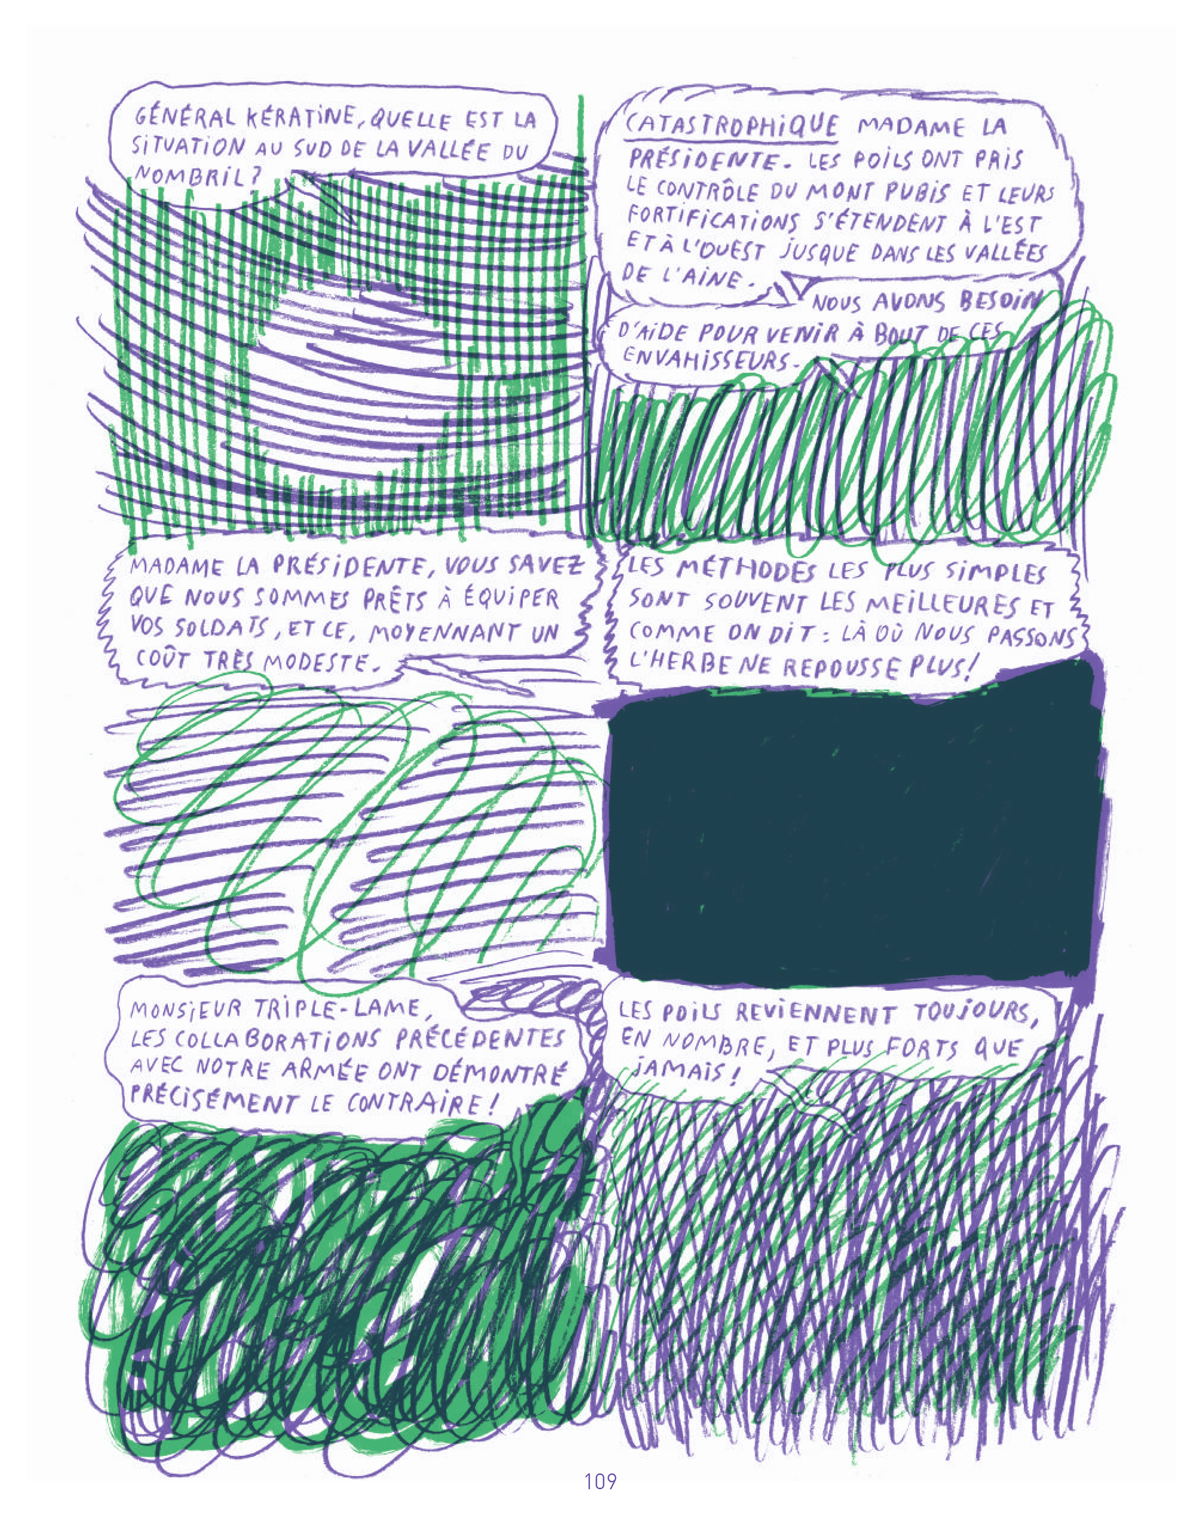 GÉNÉRAL KÉRATINE, QUELLE EST LA
SITUATION AU SUD DE LA VALLÉE DU
NOMBRIL?
CATASTROPHIQUE MADAME LA
PRÉSIDENTE. LES POILS ONT PRIS
LE CONTRÔLE DU MONT PUBIS ET LEURS
FORTIFICATIONS S'ÉTENDENT À L'EST
ET À L'OUEST JUSQUE DANS LES VALLÉES
DE L'AINE.
NOUS AVONS BESOIN
D'AIDE POUR VENIR À BOUT DE CES
ENVAHISSEURS.
MADAME LA PRÉSIDENTE, VOUS SAVEZ
QUE NOUS SOMMES PRÊTS À ÉQUIPER
VOS SOLDATS, ET CE, MOYENNANT UN
COÛT TRÈS MODESTE.
LES MÉTHODES LES PLUS SIMPLES
SONT SOUVENT LES MEILLEURES ET
COMME ON DIT : LÀ OÙ NOUS PASSONS
L'HERBE NE REPOUSSE PLUS!
MONSIEUR TRIPLE-LAME,
LES COLLABORATIONS PRÉCÉDENTES
AVEC NOTRE ARMÉE ONT DÉMONTRÉ
PRÉCISÉMENT LE CONTRAIRE!
LES POILS REVIENNENT TOUJOURS,
EN NOMBRE, ET PLUS FORTS QUE
JAMAIS!
109